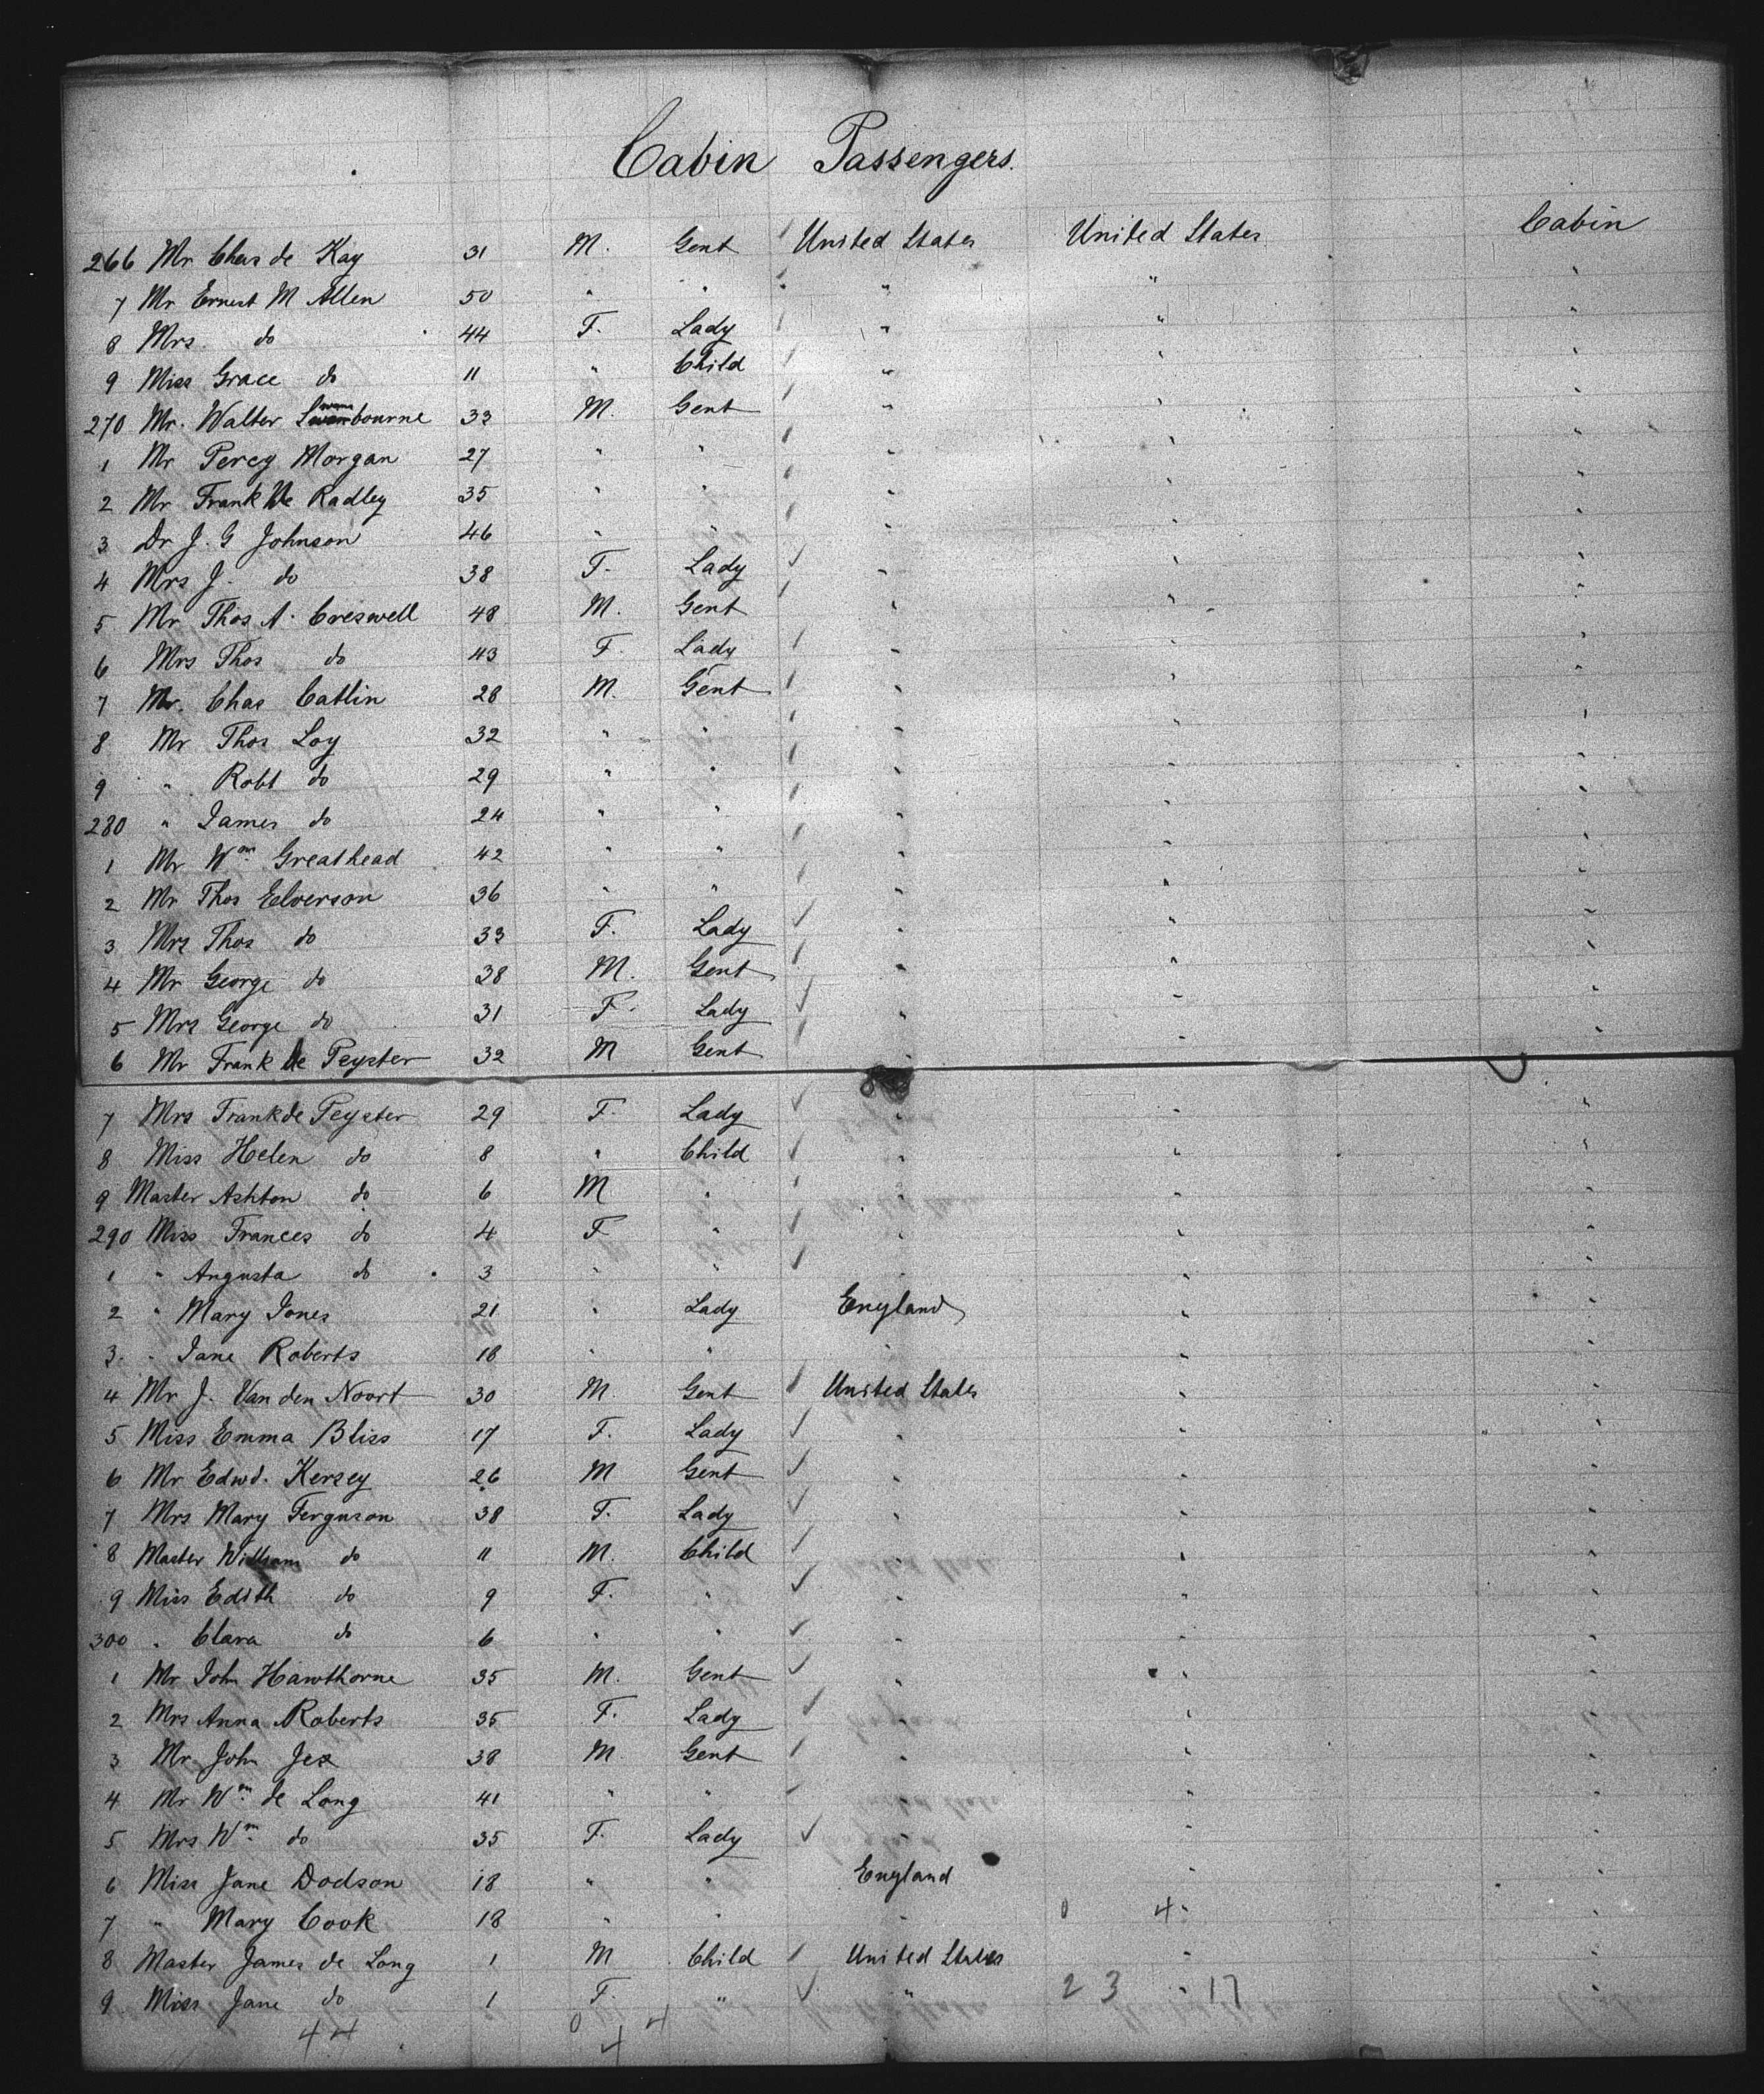 Cabin Passengers.
266 Mr Chas de Kay 31 M. Gent United States United States Cabin
7 Mr Ernest M Allen 50 " " " " "
8 Mrs. do 44 F. Lady " " "
9 Miss Grace do 11 " Child " " "
270 Mr. Walter bourne 33 M. Gent " " "
1 Mr Percy Morgan 27 " " " " "
2 Mr Frank de Radley 35 " " " " "
3 Dr J. G Johnson 46 " " " " "
4 Mrs J. do 38 F. Lady " " "
5 Mr Thos A. Creswell 48 M. Gent " " "
6 Mrs Thos do 43 F. Lady " " "
7 Mr. Chas Catlin 28 M. Gent " " "
8 Mr Thos Loy 32 " " " " "
9 " Robt do 29 " " " " "
280 " James do 24 " " " " "
1 Mr Wm Greathead 42 " " " " "
2 Mr Thos Elverson 36 " " " " "
3 Mrs Thos do 33 F. Lady " " "
4 Mr George do 38 M. Gent " " "
5 Mrs George do 31 F. Lady " " "
6 Mr Frank de Peyster 32 M Gent " " "
7 Mrs Frank de Peyster 29 F. Lady " " "
8 Miss Helen do 8 " Child " " "
9 Master Ashton do 6 M " " " "
290 Miss Frances do 4 F " " " "
1 " Augusta do 3 " " " " "
2 " Mary Jones 21 " Lady England " "
3. " Jane Roberts 18 " " " " "
4 Mr J. Van den Noort 30 M Gent United States " "
5 Miss Emma Bliss 17 F. Lady " " "
6 Mr Edwd. Kersey 26 M Gent " " "
7 Mrs Mary Ferguson 38 F. Lady " " "
8 Master William do 11 M. Child " " "
9 Miss Edith do 9 F. " " " "
300 " Clara do 6 " " " " "
1 Mr John Hawthorne 35 M. Gent " " "
2 Mrs Anna Roberts 35 F. Lady " " "
3 Mr John Jex 38 M. Gent " " "
4 Mr Wm de Long 41 " " " " "
5 Mrs Wm do 35 F. Lady " " "
6 Miss Jane Dodson 18 " " England " "
7 " Mary Cook 18 " " " 0 4 " "
8 Master James de Long 1 M Child United States " "
9 Miss Jane do 1 F. " " 23 " 17
44 0 4
4